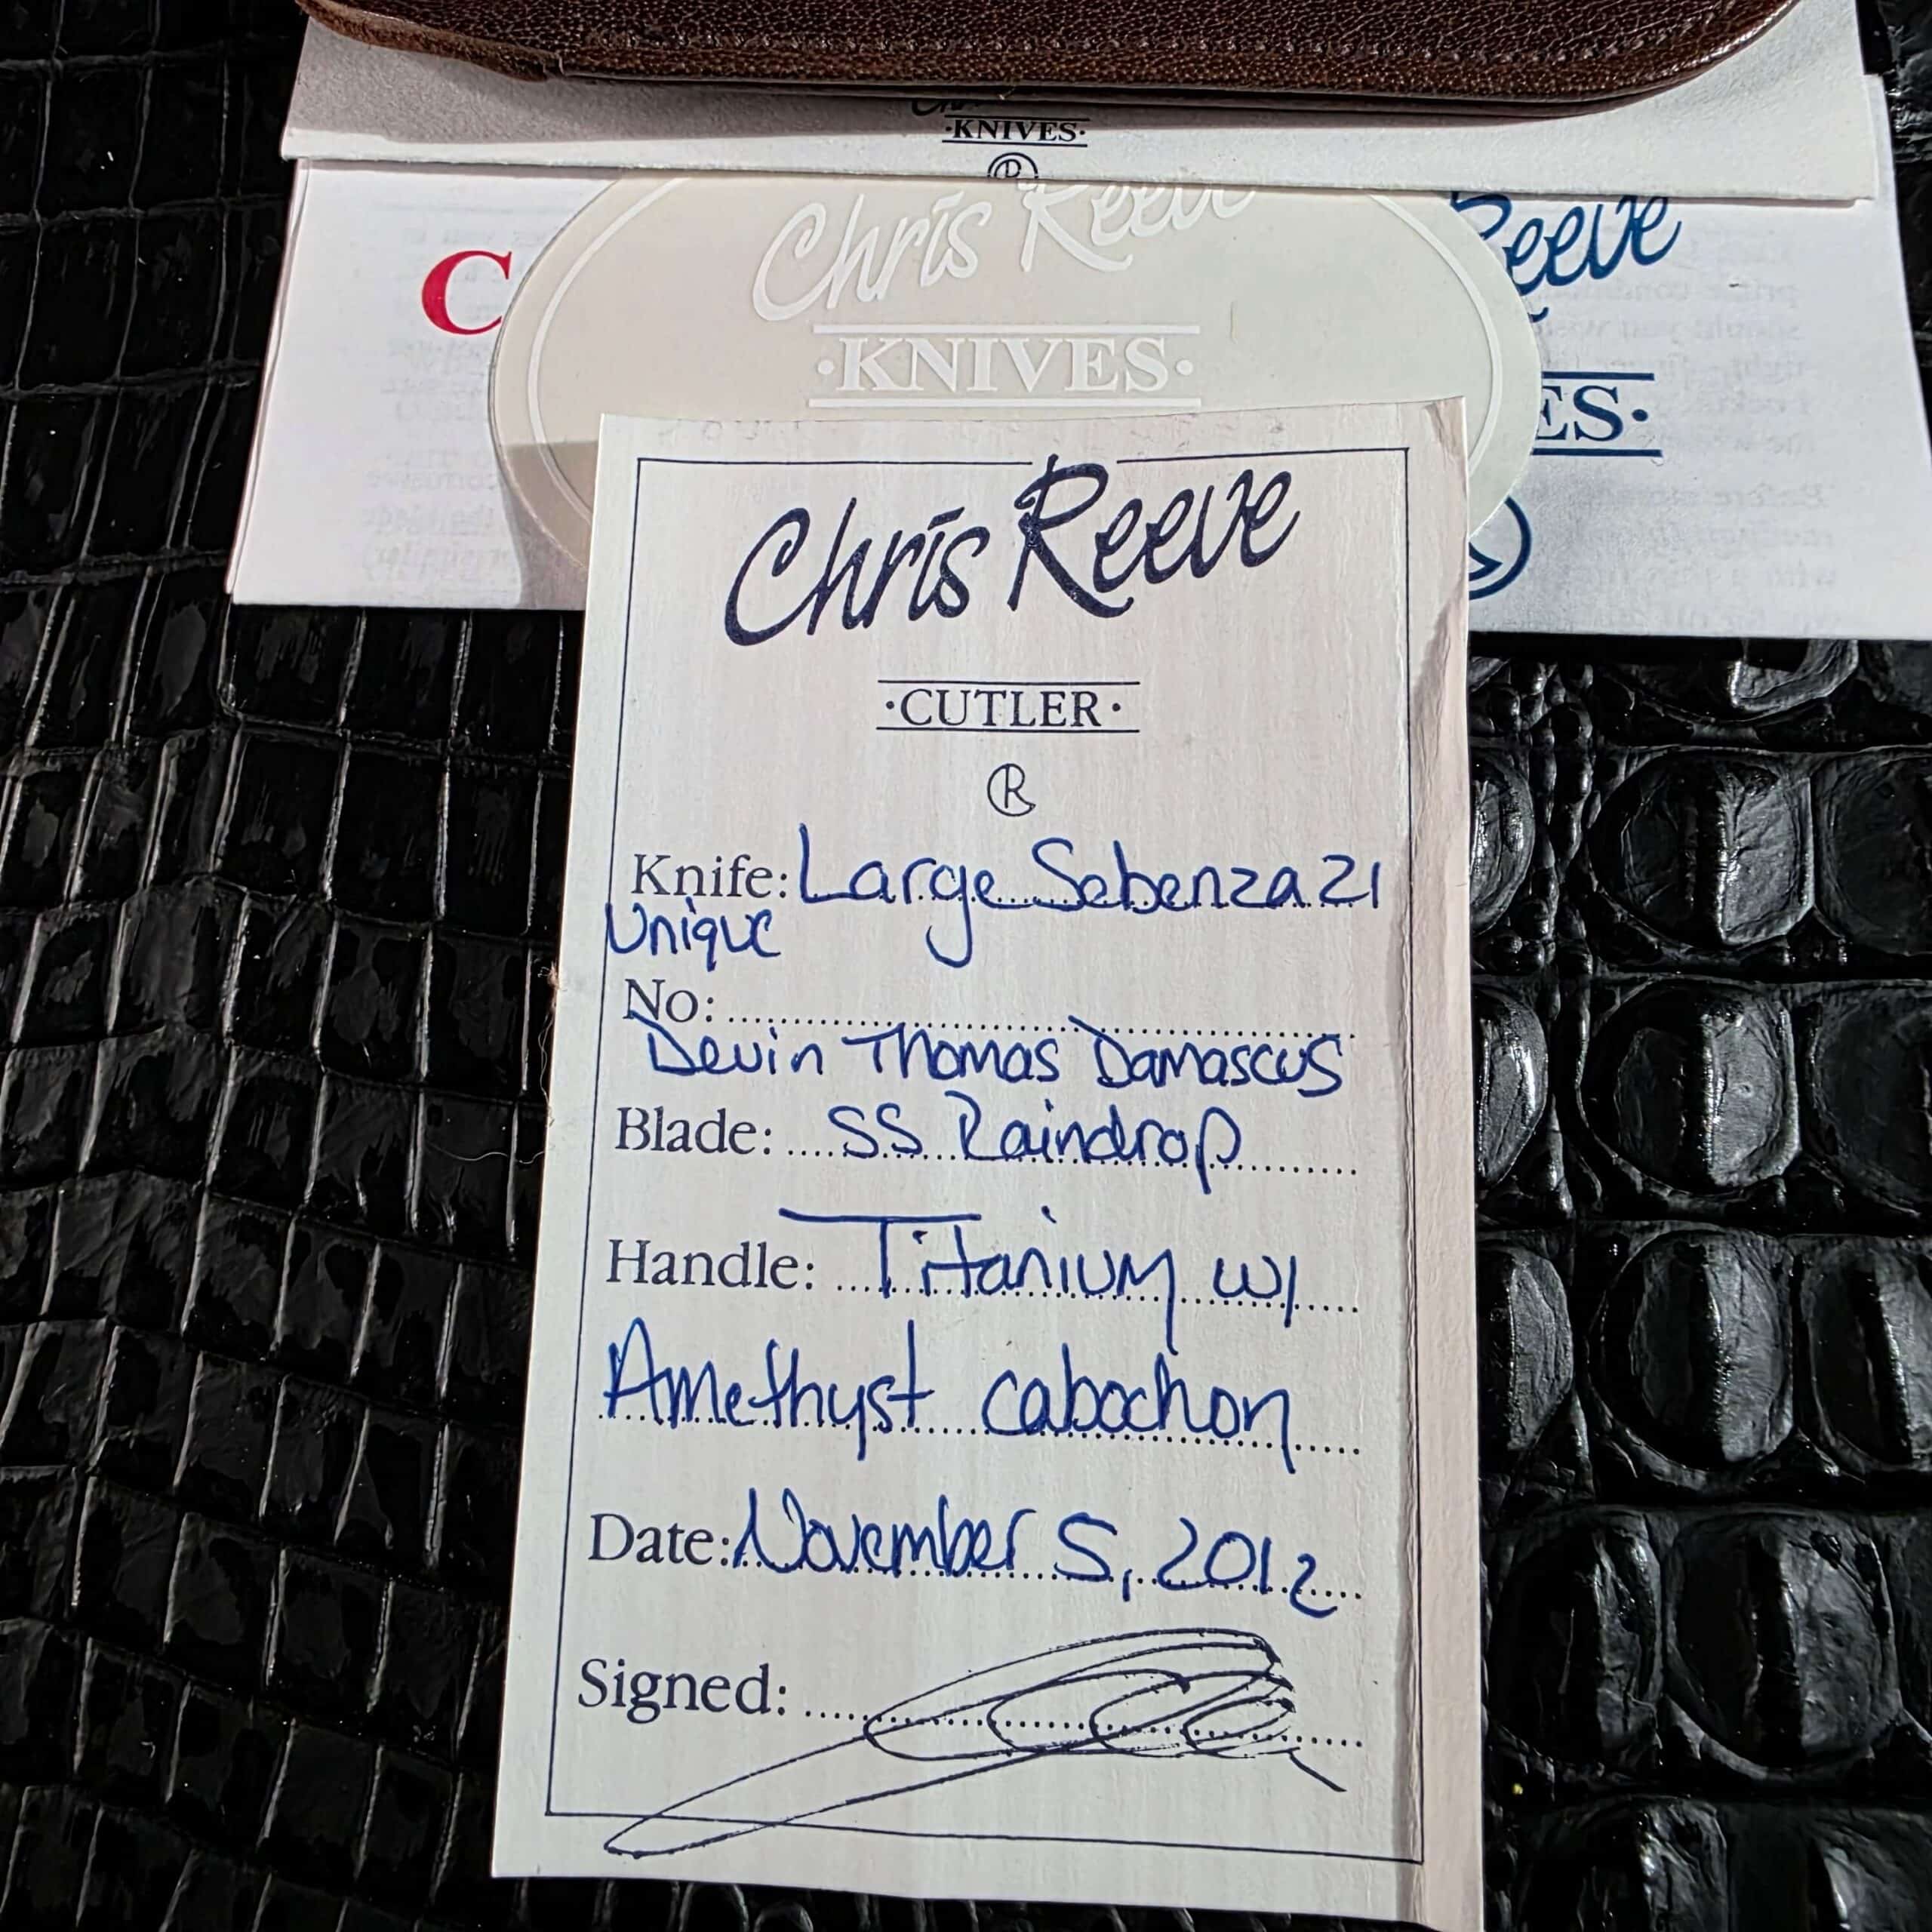 KNIVES
Chris Reeve
·KNIVES·
C
Reeve
ES·
Chris Reeve
·CUTLER·
R
Knife: Large Sebenza 21
Unique
No:
Devin Thomas Damascus
Blade: SS Raindrop
Handle: Titanium w/
Amethyst cabochon
Date: November 5, 2012
Signed: